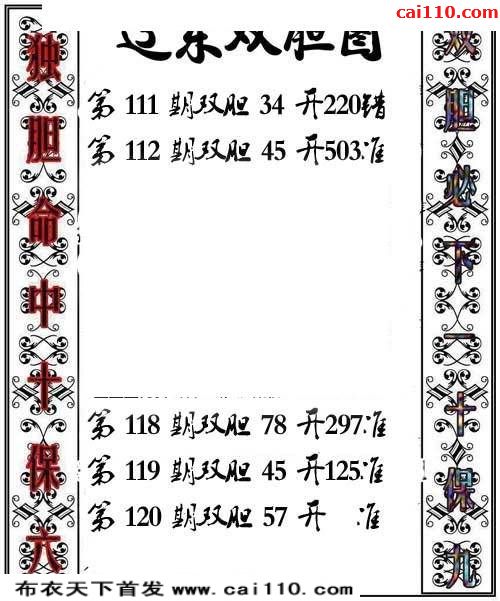 cai110.com
双胆图
第 111 期双胆 34 开220错
第 112 期双胆 45 开503准
第 118 期双胆 78 开297准
第 119 期双胆 45 开125准
第 120 期双胆 57 开 准
独胆命中十保六
双胆必下一十保九
布衣天下首发 www.cai110.com